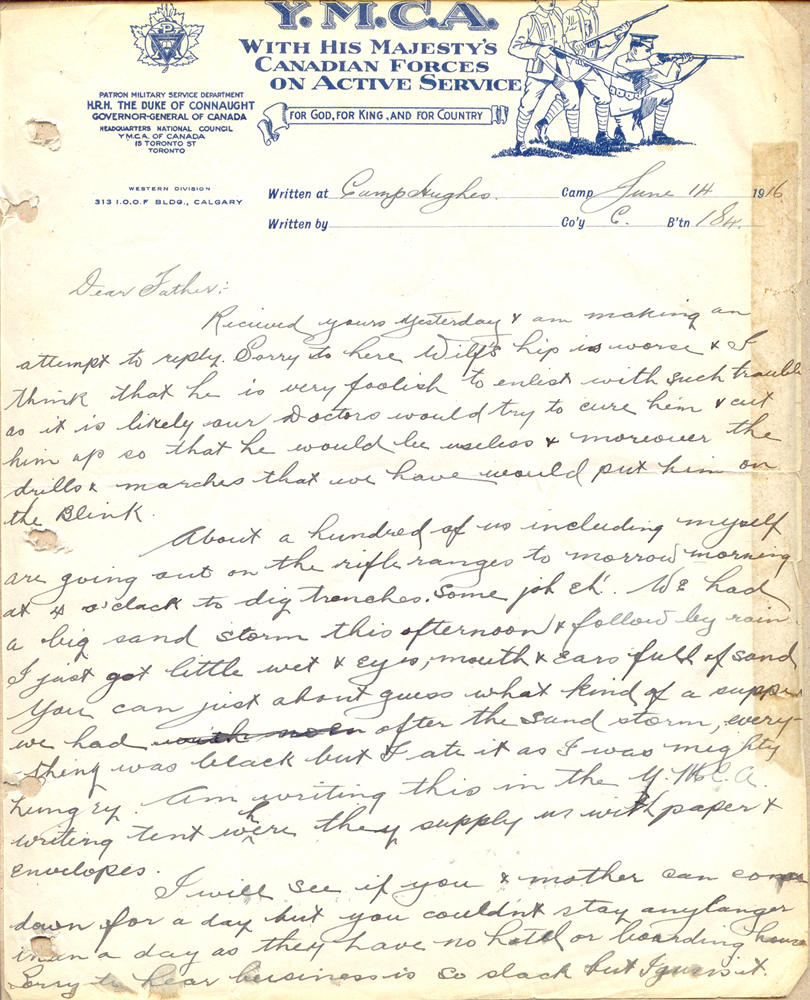 Y.M.C.A.
WITH HIS MAJESTY'S
CANADIAN FORCES
ON ACTIVE SERVICE
FOR GOD, FOR KING, AND FOR COUNTRY
PATRON MILITARY SERVICE DEPARTMENT
H.R.H. THE DUKE OF CONNAUGHT
GOVERNOR-GENERAL OF CANADA
HEADQUARTERS NATIONAL COUNCIL
Y.M.C.A. OF CANADA
15 TORONTO ST
TORONTO
WESTERN DIVISION
313 I.O.O.F BLDG., CALGARY
Written at Camp Hughes. Camp June 14 1916
Written by Co'y C. B'tn 184.
Dear Father:
Recieved yours yesterday & am making an
attempt to reply. Sorry to here Wilf's hip is worse & I
think that he is very foolish to enlist with such trouble
as it is likely our Doctors would try to cure him & cut
him up so that he would be useless & moreover the
drills & marches that we have would put him on
the Blink.
About a hundred of us including myself
are going out on the rifle ranges to morrow morning
at 4 o'clack to dig trenches. Some job eh'. We had
a big sand storm this afternoon & follow by rain.
I just got little wet & eyes, mouth & ears full of sand
You can just about guess what kind of a supper
we had after the sand storm, every-
thing was black but I ate it as I was mighty
hungry. Am writing this in the Y.M.C.A.
writing tent where they supply us with paper &
envelopes.
I will see if you & mother can come
down for a day but you couldn't stay any langer
than a day as they have no hotel or boarding house
Sorry to hear business is so slack but I guess it.